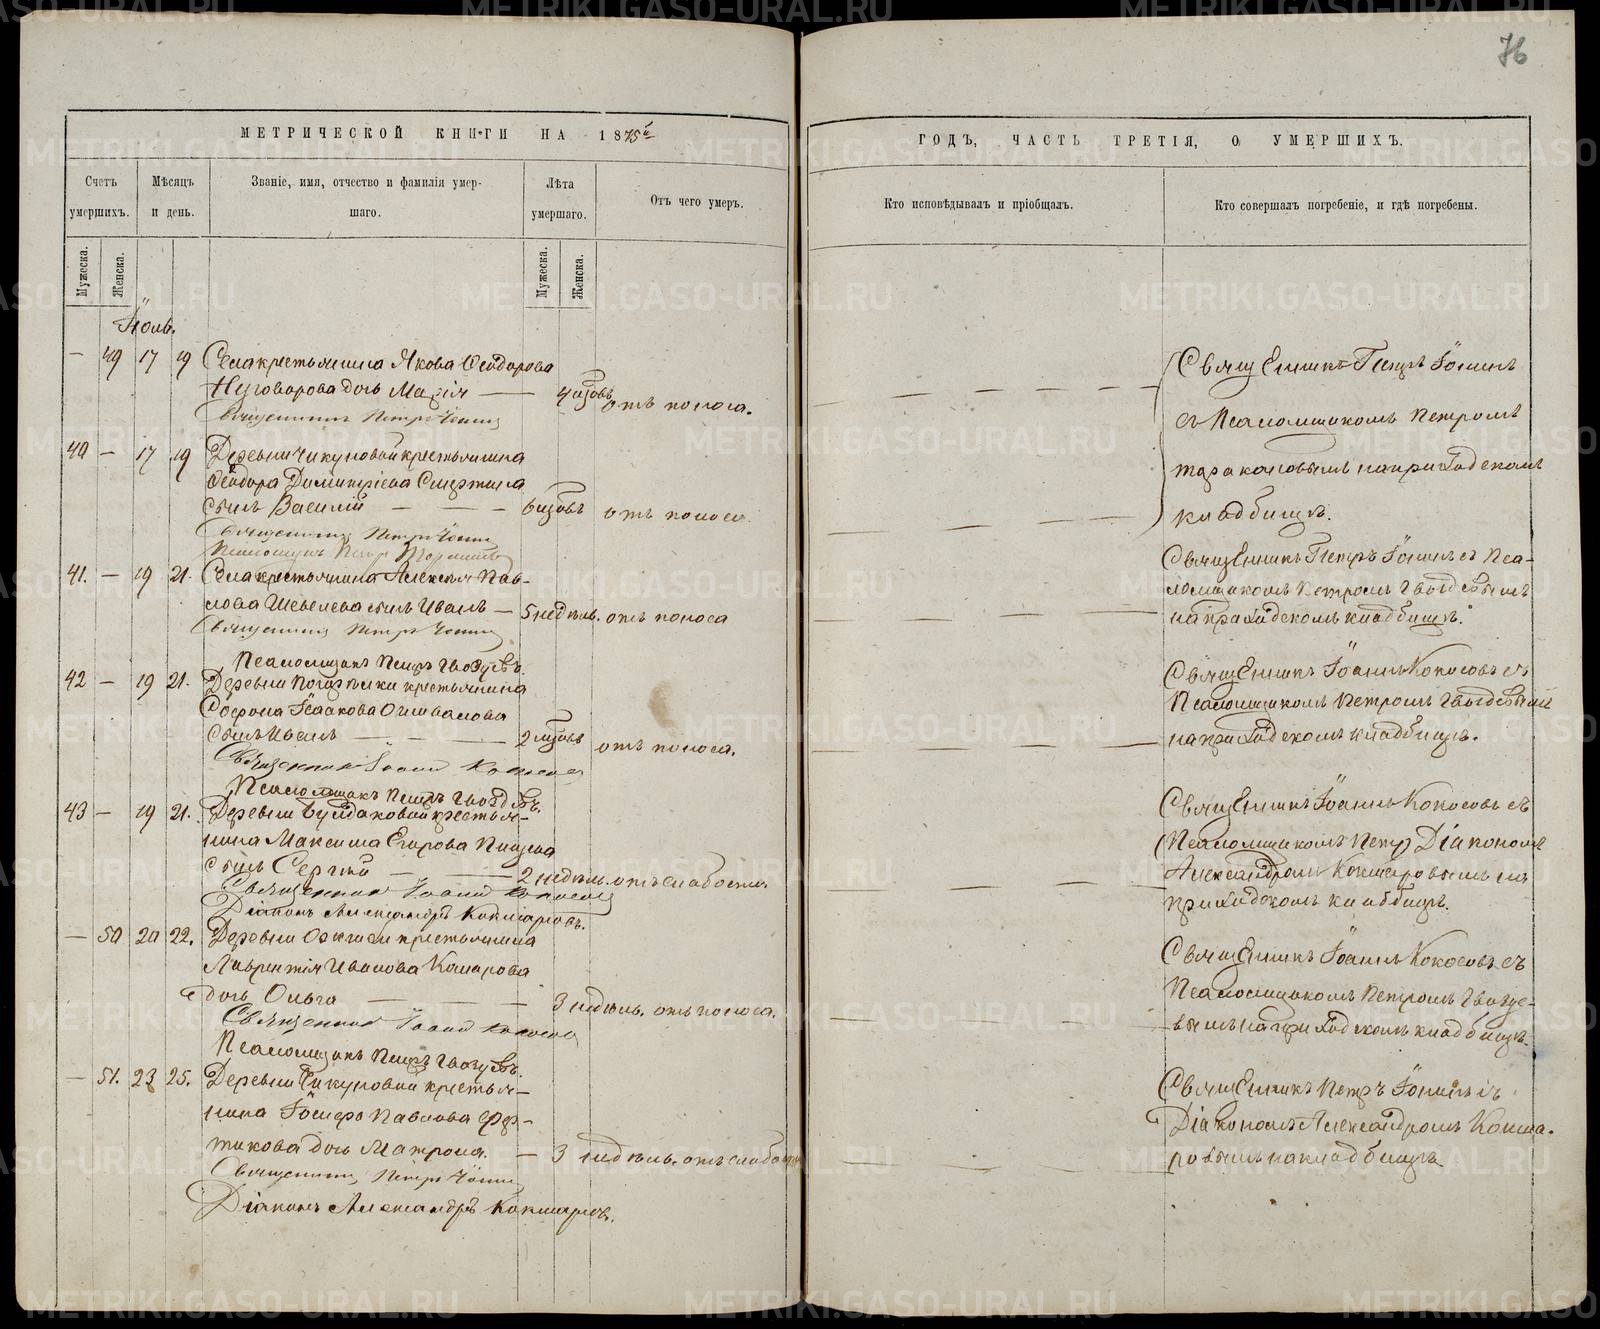 76
МЕТРИЧЕСКОЙ КНИГИ НА 1875й
ГОДЪ, ЧАСТЬ ТРЕТІЯ, О УМЕРШИХЪ.
Счетъ умершихъ.
Мѣсяцъ и день.
Званіе, имя, отчество и фамилія умер-
шаго.
Лѣта умершаго.
Отъ чего умеръ.
Кто исповѣдывалъ и пріобщалъ.
Кто совершалъ погребеніе, и гдѣ погребены.
Мужеска.
Женска.
Мужеска.
Женска.
Іюль.
— 49 17 19 Села крестьянина Якова Ѳеодорова
дочь Марія — 4 отъ поноса.
Священникъ Петръ
Священникъ Петръ
съ Псаломщикомъ Петромъ
на приходскомъ
кладбищѣ.
40 — 17 19 Деревни Чикуновой крестьянина
Ѳеодора Димитріева
сынъ Василій — — — 6 отъ поноса
Священникъ Петръ
Псаломщикъ Петръ
41. — 19 21. Села крестьянина Алексѣя Пав-
лова Шевелева сынъ Иванъ — 5 недѣль. отъ поноса
Священникъ Петръ
Псаломщикъ Петръ Гвоздевъ.
Священникъ Петръ съ Пса-
ломщикомъ Петромъ Гвоздевымъ
на приходскомъ кладбищѣ.
42 — 19 21. Деревни крестьянина
Исаакова
сынъ Иванъ — — — 2 отъ поноса.
Священникъ Іоаннъ Кокосовъ
Псаломщикъ Петръ Гвоздевъ.
Священникъ Іоаннъ Кокосовъ съ
Псаломщикомъ Петромъ Гвоздевымъ
на приходскомъ кладбищѣ.
43 — 19 21. Деревни крестья-
нина Максима Егорова
сынъ Сергій — — 2 недѣль. отъ слабости.
Священникъ Іоаннъ Кокосовъ
Діаконъ Александръ Кокшаровъ.
Священникъ Іоаннъ Кокосовъ съ
Діакономъ
Александромъ Кокшаровымъ на
приходскомъ кладбищѣ.
— 50 20 22. Деревни крестьянина
Лаврентія Иванова Комарова
дочь Ольга — — — 3 недѣль. отъ поноса.
Священникъ Іоаннъ Кокосовъ
Псаломщикъ Петръ Гвоздевъ.
Священникъ Іоаннъ Кокосовъ съ
Псаломщикомъ Петромъ Гвозде-
вымъ на приходскомъ кладбищѣ.
— 51. 23 25. Деревни Чикуновой крестья-
нина Павлова
дочь Матрона. — 3 недѣль. отъ слабости
Священникъ Петръ
Діаконъ Александръ Кокшаровъ.
Священникъ Петръ съ
Діакономъ Александромъ Кокша-
ровымъ на кладбищѣ
METRIKI.GASO-URAL.RU